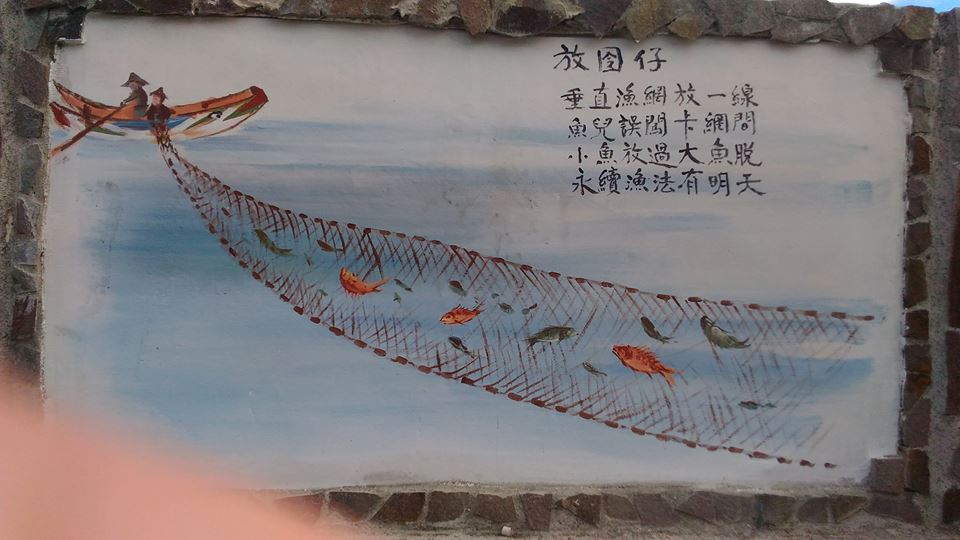 放囹仔
垂直漁網放一線
魚兒誤闖卡網間
小魚放過大魚脫
永續漁法有明天